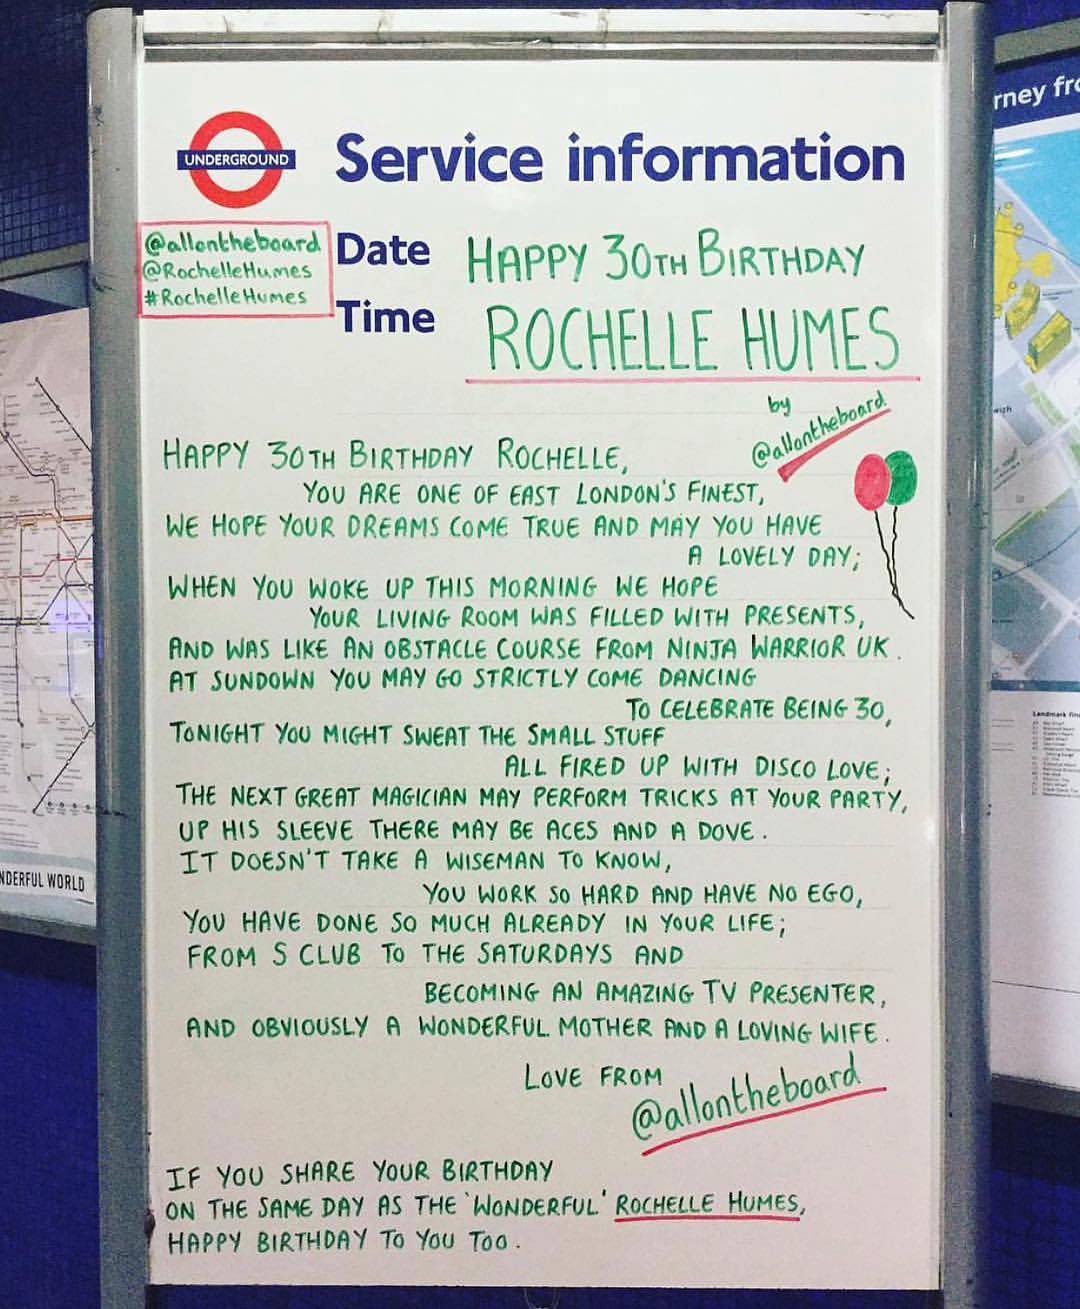 UNDERGROUND
Service information
@allontheboard
@RochelleHumes
#RochelleHumes
Date
HAPPY 30TH BIRTHDAY
Time
ROCHELLE HUMES
by
@allontheboard
HAPPY 30TH BIRTHDAY ROCHELLE,
YOU ARE ONE OF EAST LONDON'S FINEST,
WE HOPE YOUR DREAMS COME TRUE AND MAY YOU HAVE
A LOVELY DAY;
WHEN YOU WOKE UP THIS MORNING WE HOPE
YOUR LIVING ROOM WAS FILLED WITH PRESENTS,
AND WAS LIKE AN OBSTACLE COURSE FROM NINJA WARRIOR UK.
AT SUNDOWN YOU MAY GO STRICTLY COME DANCING
TO CELEBRATE BEING 30,
TONIGHT YOU MIGHT SWEAT THE SMALL STUFF
ALL FIRED UP WITH DISCO LOVE;
THE NEXT GREAT MAGICIAN MAY PERFORM TRICKS AT YOUR PARTY,
UP HIS SLEEVE THERE MAY BE ACES AND A DOVE.
IT DOESN'T TAKE A WISEMAN TO KNOW,
YOU WORK SO HARD AND HAVE NO EGO,
YOU HAVE DONE SO MUCH ALREADY IN YOUR LIFE;
FROM S CLUB TO THE SATURDAYS AND
BECOMING AN AMAZING TV PRESENTER,
AND OBVIOUSLY A WONDERFUL MOTHER AND A LOVING WIFE.
LOVE FROM
@allontheboard
IF YOU SHARE YOUR BIRTHDAY
ON THE SAME DAY AS THE 'WONDERFUL' ROCHELLE HUMES,
HAPPY BIRTHDAY TO YOU TOO.
NDERFUL WORLD
rney fro
Landmark